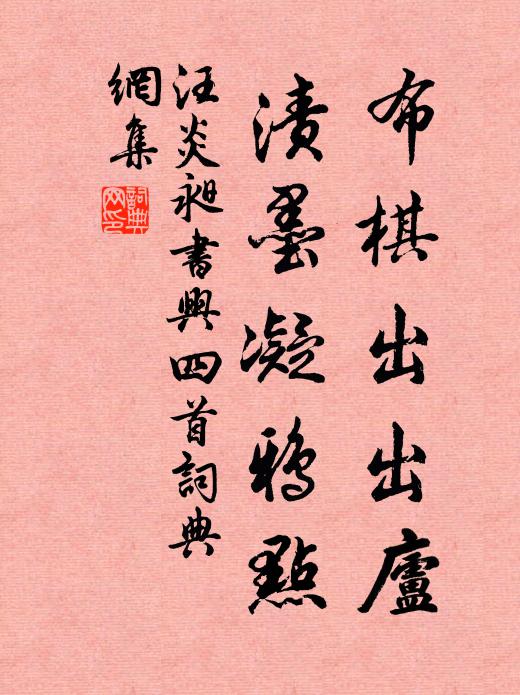 布棋出出廬
漬墨凝鴉點
汪炎昶書興四首詞典
網集
詞典
網印